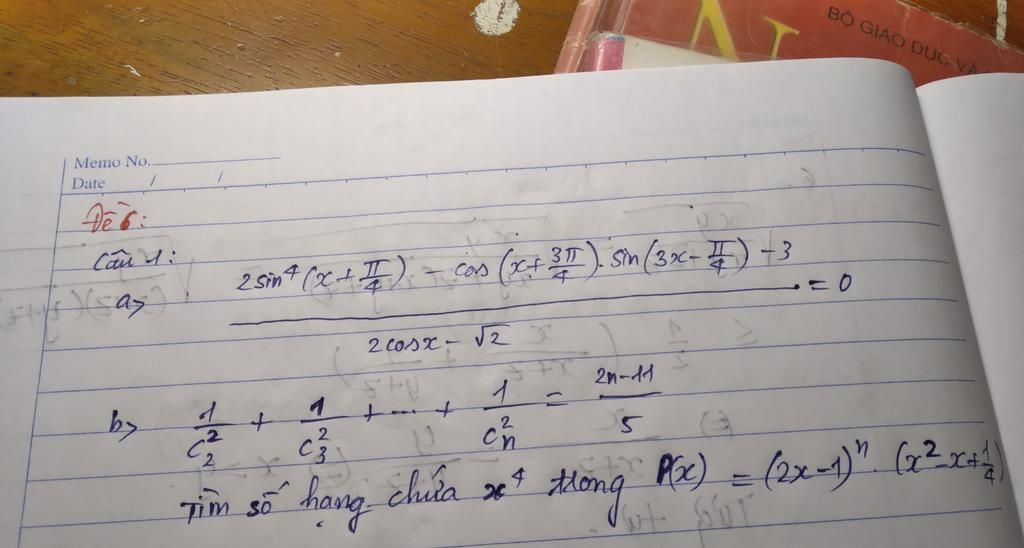 BỘ GIÁO DỤC VÀ
Memo No.
Date / /
Đề 6:
Câu 1:
a> \frac{2sin^4(x+\frac{π}{4}) - cos(x+\frac{3π}{4}).sin(3x-\frac{π}{4}) - 3}{2cosx - √2} = 0
b> \frac{1}{C_2^2} + \frac{1}{C_3^2} + ... + \frac{1}{C_n^2} = \frac{2n-11}{5}
Tìm số hạng chứa x^4 trong P(x) = (2x-1)^n . (x^2-x+\frac{1}{4})